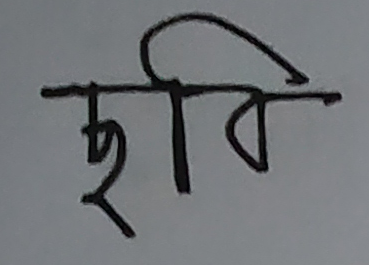 ছবি